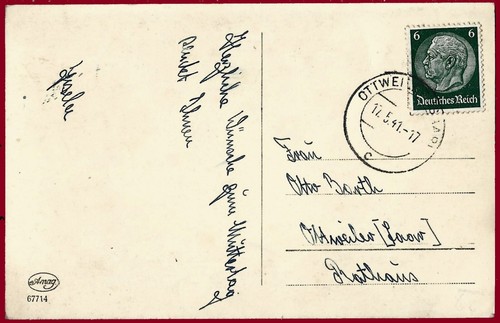 Herzliche Wünsche zum Muttertag
sendet Ihnen
Gisela
6 6
Deutsches Reich
OTTWEI
12.5.41.-17
c
Frau
Otto Barth
Ottweiler [Saar]
Rathaus
Amag
67714